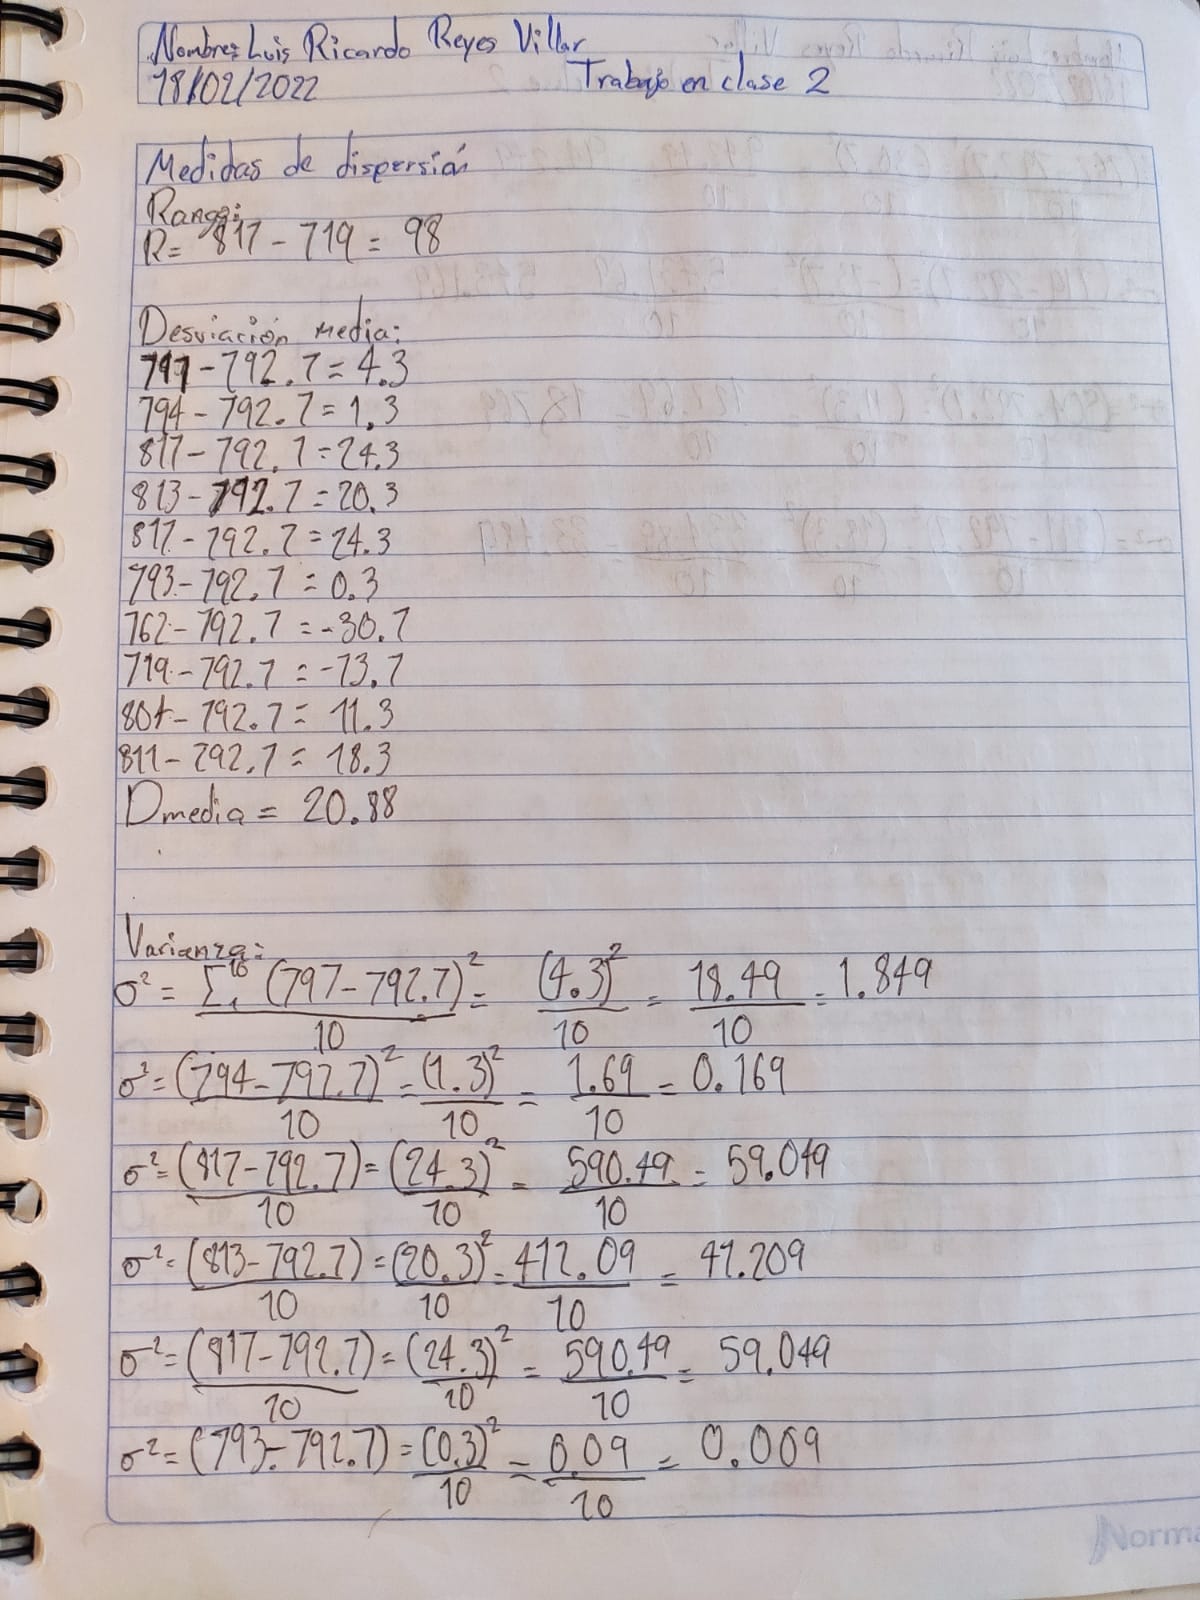 Nombre: Luis Ricardo Reyes Villar
18/02/2022 Trabajo en clase 2
Medidas de dispersión
Rango:
R= 817 - 719 = 98
Desviación media:
797 - 792.7 = 4.3
794 - 792.7 = 1.3
817 - 792.7 = 24.3
813 - 792.7 = 20.3
817 - 792.7 = 24.3
793 - 792.7 = 0.3
762 - 792.7 = -30.7
719 - 792.7 = -73.7
804 - 792.7 = 11.3
811 - 792.7 = 18.3
Dmedia = 20.88
Varianza:
σ² = Σ₁¹⁰ (797 - 792.7)² = (4.3)² = 18.49 = 1.849
10 10 10
σ² = (794 - 792.7)² = (1.3)² = 1.69 = 0.169
10 10 10
σ² = (817 - 792.7) = (24.3)² = 590.49 = 59.049
10 10 10
σ² = (813 - 792.7) = (20.3)² = 412.09 = 41.209
10 10 10
σ² = (817 - 792.7) = (24.3)² = 590.49 = 59.049
10 10 10
σ² = (793 - 792.7) = (0.3)² = 0.09 = 0.009
10 10
Norma